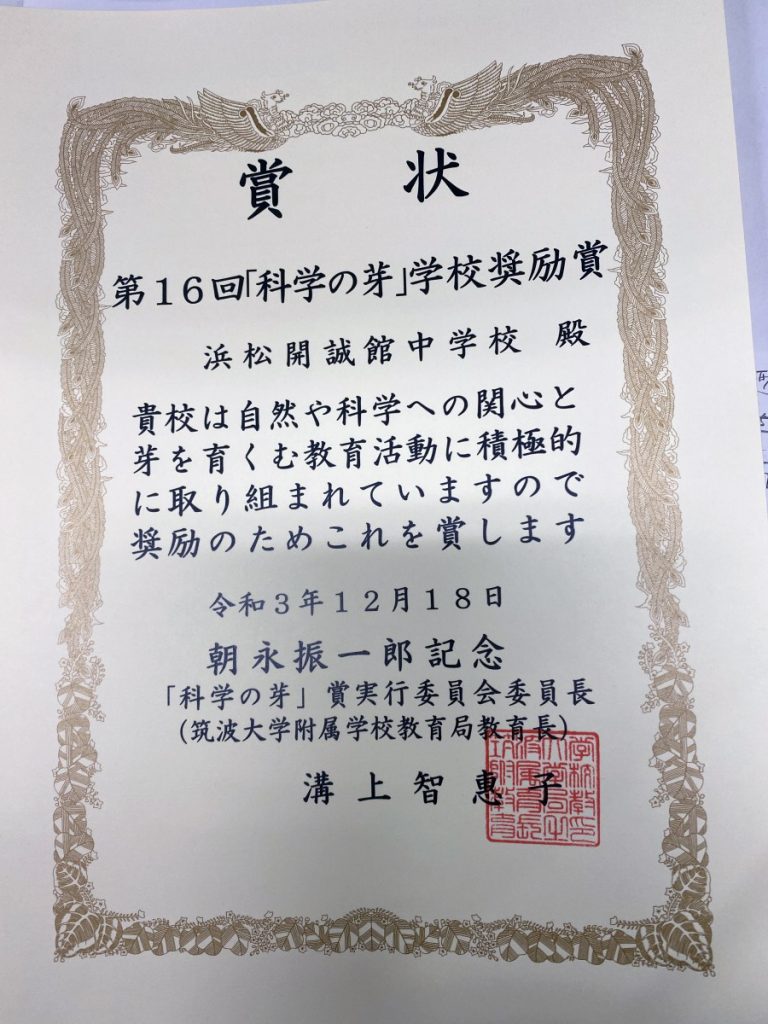 賞状
第16回「科学の芽」学校奨励賞
浜松開誠館中学校 殿
貴校は自然や科学への関心と
芽を育くむ教育活動に積極的
に取り組まれていますので
奨励のためこれを賞します
令和3年12月18日
朝永振一郎記念
「科学の芽」賞実行委員会委員長
(筑波大学附属学校教育局教育長)
溝上智惠子